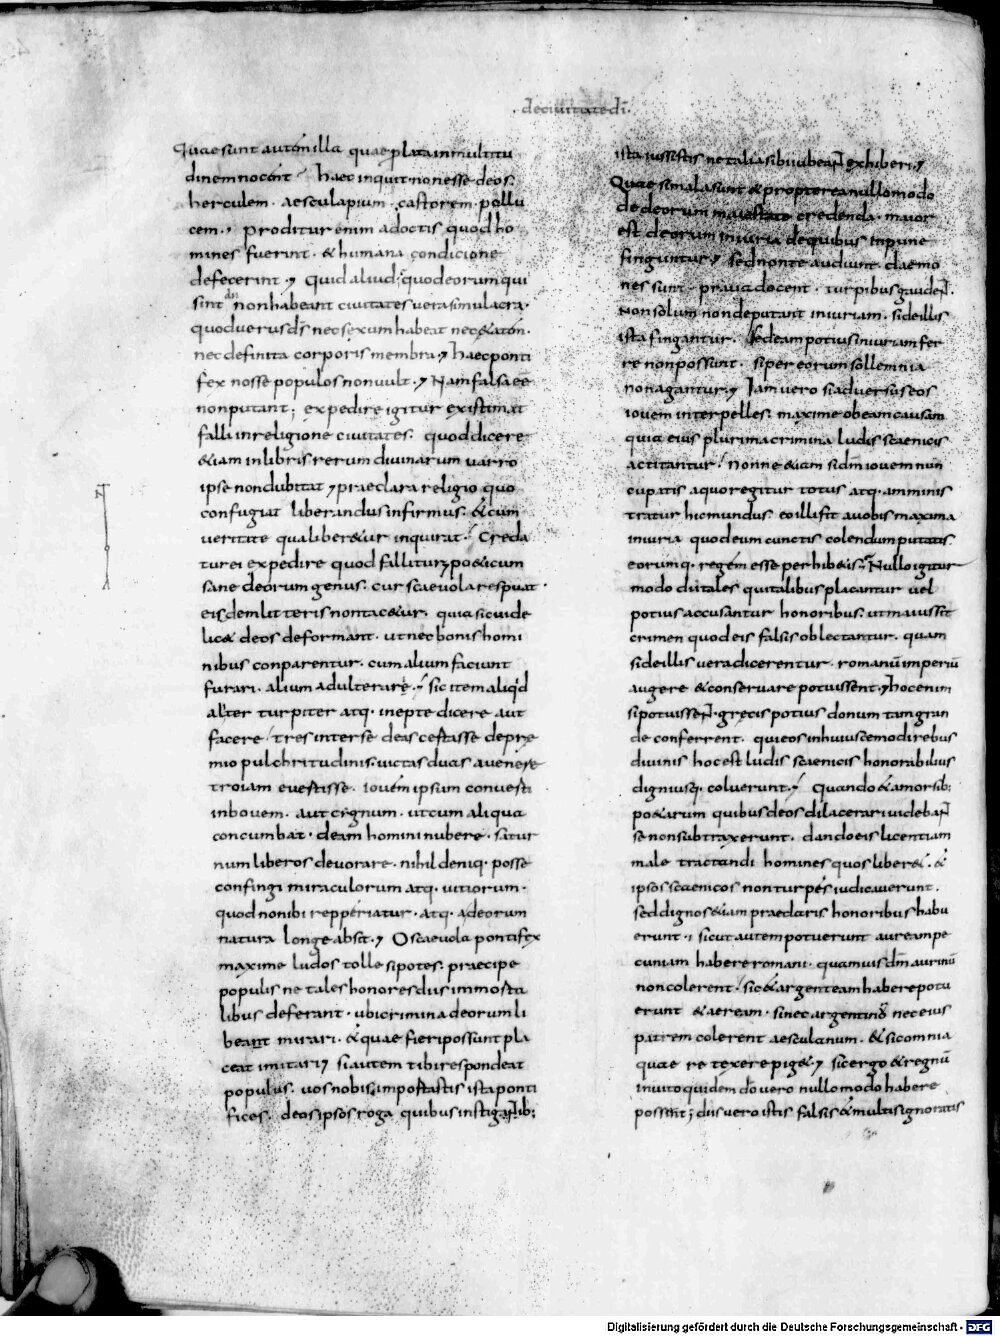 · deciuitatedī ·
Quae sunt autem illa quae plata in multitu
dinem nocent · haec inquit · non esse deos ·
herculem · aesculapium · castorem · pollu
cem · proditur enim a doctis quod ho
mines fuerint · & humana condicione
defecerint · Quid aliud · quod eorum qui
sint dn̄ non habeant ciuitates uera simulacra ·
quod uerus ds̄ nec sexum habeat nec &atem ·
nec definita corporis membra · haec ponti
fex nosse populos non uult · Nam falsa eē
non putant ; expedire igitur existimat
falli in religione ciuitates · quod dicere
&iam in libris rerum diuinarum uarro
ipse non dubitat · praeclara religio quo
confugiat liberandus infirmus · & cum
ueritate qua liber&ur inquirat · Creda
tur ei expedire quod fallitur · po&icum
sane deorum genus · cur scaeuola respuat ·
eisdem litteris non tac&ur · quia sic uide
lic& deos deformant · ut nec bonis homi
nibus conparentur · cum alium faciunt
furari · alium adulterare · sic item aliq'd
aliter turpiter atq · inepte dicere aut
facere · tres inter se deas certasse de pre
mio pulchritudinis · uictas duas a uenere
troiam euertisse · iouem ipsum conuerti
in bouem · aut cygnum · ut cum aliqua
concumbat · deam homini nubere · satur
num liberos deuorare · nihil deniq · posse
confingi miraculorum atq · uitiorum ·
quod non ibi repperiatur · atq · a deorum
natura longe absit · O scaeuola pontifex
maxime ludos tolle si potes · praecipe
populis ne tales honores diis immorta
libus deferant · ubi crimina deorum li
beant mirari · & quae fieri possunt pla
ceat imitari · si autem tibi respondeat
populus · uos nobis importastis ista ponti
fices · deos ipsos roga quibus instigantib;
ista iussistis ne talia sibi iubeant exhiberi ·
Quae si mala sunt & propterea nullo modo
de deorum maiestate credenda · maior
est deorum iniuria de quibus inpune
finguntur · Sed non te audiunt · daemo
nes sunt · praua docent · turpibus gaudent ·
non solum non deputant iniuriam · si de illis
ista fingantur · sed eam potius iniuriam fer
re non possunt · si per eorum sollemnia
non agantur · Iam uero si aduersus eos
iouem interpelles · maxime ob eam causam
quia eius plurima crimina ludis scaenicis
actitantur · nonne &iam si dm̄ iouem nun
cupatis a quo regitur totus atq · amminis
tratur hic mundus · eo illi fit a uobis maxima
iniuria quod eum cunctis colendum putatis
eorumq · regem esse perhib&is · Nullo igitur
modo dii tales qui talibus placantur uel
potius accusantur honoribus · ut maius sit
crimen quod eis falsis oblectantur · quam
si de illis uera dicerentur · romanū imperiū
augere & conseruare potuissent · hoc enim
si potuissent · grecis potius donum tam gran
de conferrent · qui eos in huiuscemodi rebus
diuinis hoc est ludis scaenicis honorabilius
digniusq · coluerunt · Quando & a morsib;
po&arum quibus deos dilacerari uidebant
se non subtraxerunt · dando eis licentiam
male tractandi homines quos liber& · &
ipsos scaenicos non turpes iudicauerunt ·
sed dignos &iam praeclaris honoribus habu
erunt · sicut autem potuerunt auream pe
cuniam habere romani · quamuis dm̄ aurinū
non colerent · sic & argenteam habere potu
erunt & aeream · si nec argentinū nec eius
patrem colerent aesculanum · & sic omnia
quae retexere pig& · sic ergo & regnū
inuito quidem do uero nullo modo habere
possent ; diis uero istis falsis & multis ignoratis